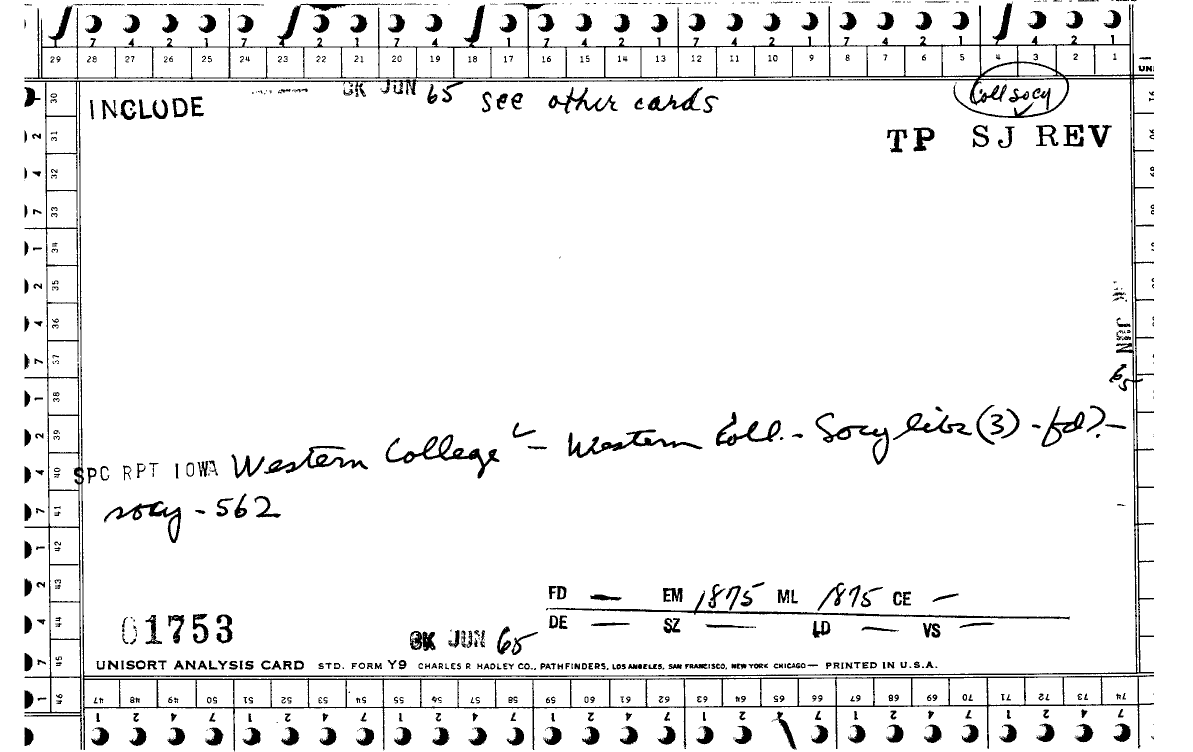 7 4 2 1 7 4 2 1 7 4 2 1 7 4 2 1 7 4 2 1 7 4 2 1
29 28 27 26 25 24 23 22 21 20 19 18 17 16 15 14 13 12 11 10 9 8 7 6 5 4 3 2 1
INCLUDE
OK JUN 65 see other cards
Coll socy
TP SJ REV
OK JUN 65
SPC RPT IOWA Western College - Western Coll. - Socy libr (3) - fd? -
socy - 562
FD — EM 1875 ML 1875 CE —
DE — SZ — LD — VS —
01753
OK JUN 65
UNISORT ANALYSIS CARD STD. FORM Y9 CHARLES R HADLEY CO., PATHFINDERS, LOS ANGELES, SAN FRANCISCO, NEW YORK CHICAGO — PRINTED IN U.S.A.
47 48 49 50 51 52 53 54 55 56 57 58 59 60 61 62 63 64 65 66 67 68 69 70 71 72 73 74
1 2 4 7 1 2 4 7 1 2 4 7 1 2 4 7 1 2 4 7 1 2 4 7